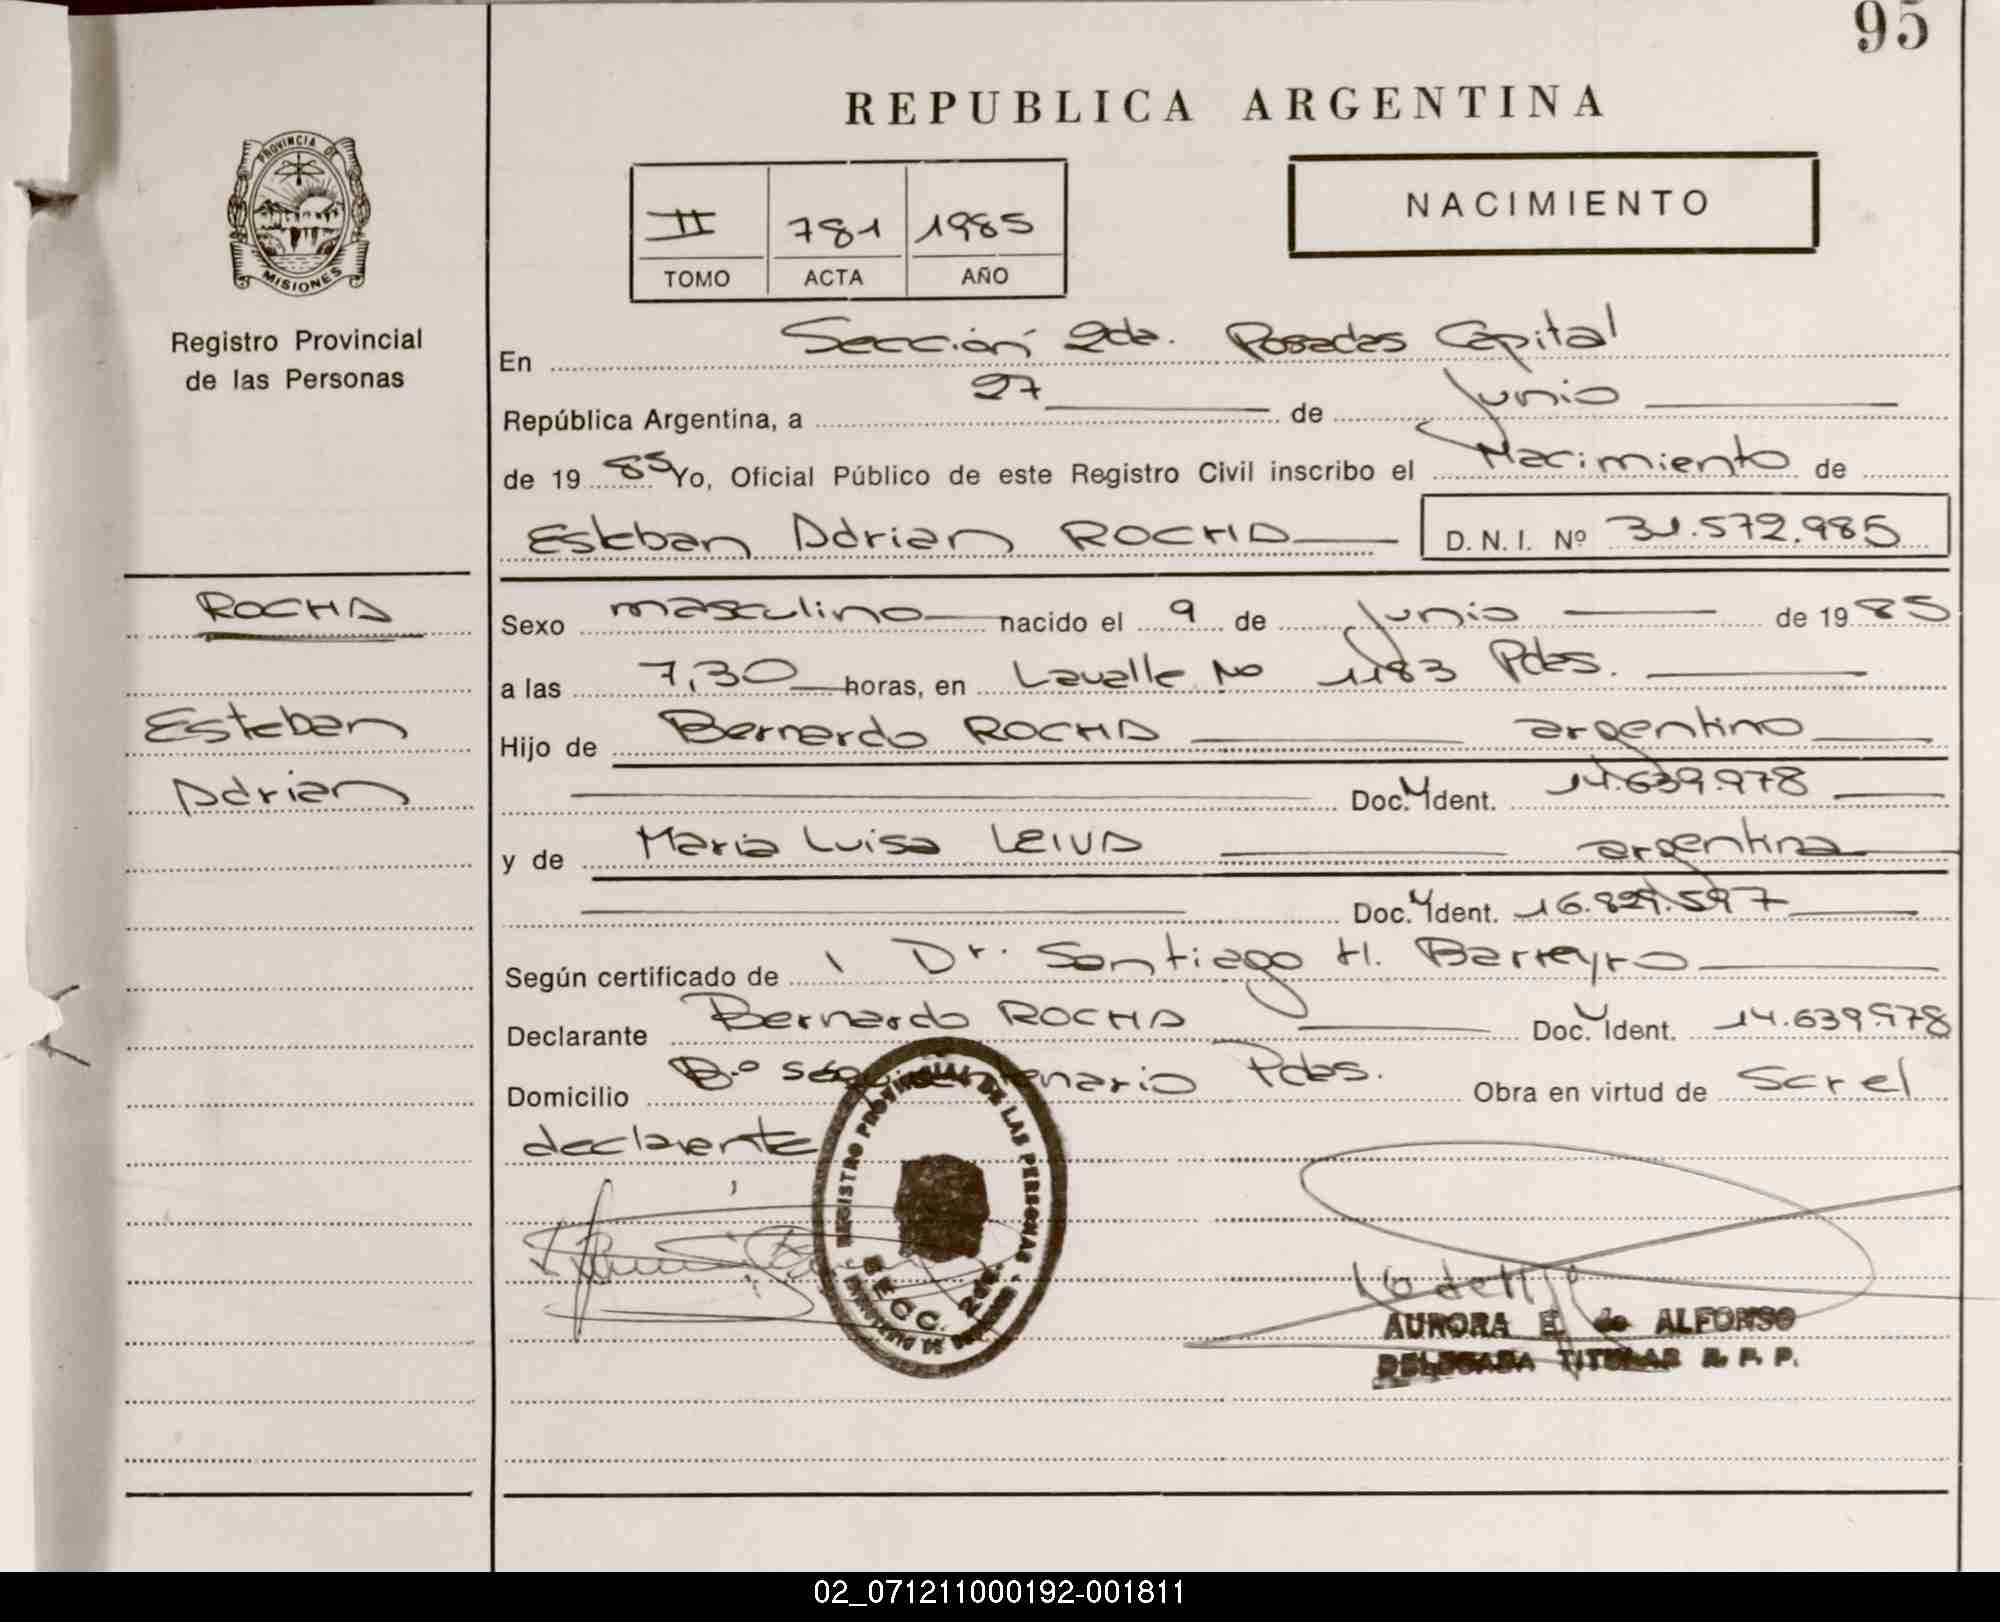 95
REPUBLICA ARGENTINA
PROVINCIA DE
MISIONES
Registro Provincial
de las Personas
II 781 1985
TOMO ACTA AÑO
NACIMIENTO
En Sección 2da. Posadas Capital
República Argentina, a 27 de Junio
de 19 85 Yo, Oficial Público de este Registro Civil inscribo el Nacimiento de
Esteban Adrian ROCHA D. N. I. Nº 31.572.985
ROCHA
Esteban
Adrian
Sexo masculino nacido el 9 de Junio de 19 85
a las 7,30 horas, en Lavalle No 1183 Pdas.
Hijo de Bernardo ROCHA argentino
Doc. Ident. 14.639.978
y de Maria Luisa LEIVA argentina
Doc. Ident. 16.829.597
Según certificado de Dr. Santiago H. Barreyro
Declarante Bernardo ROCHA Doc. Ident. 14.639.978
Domicilio B.º sesquicentenario Pdas. Obra en virtud de Scr el
declarante
REGISTRO PROVINCIAL DE LAS PERSONAS
SECC. 2da.
AURORA E. de ALFONSO
DELEGADA TITULAR R. P. P.
02_071211000192-001811